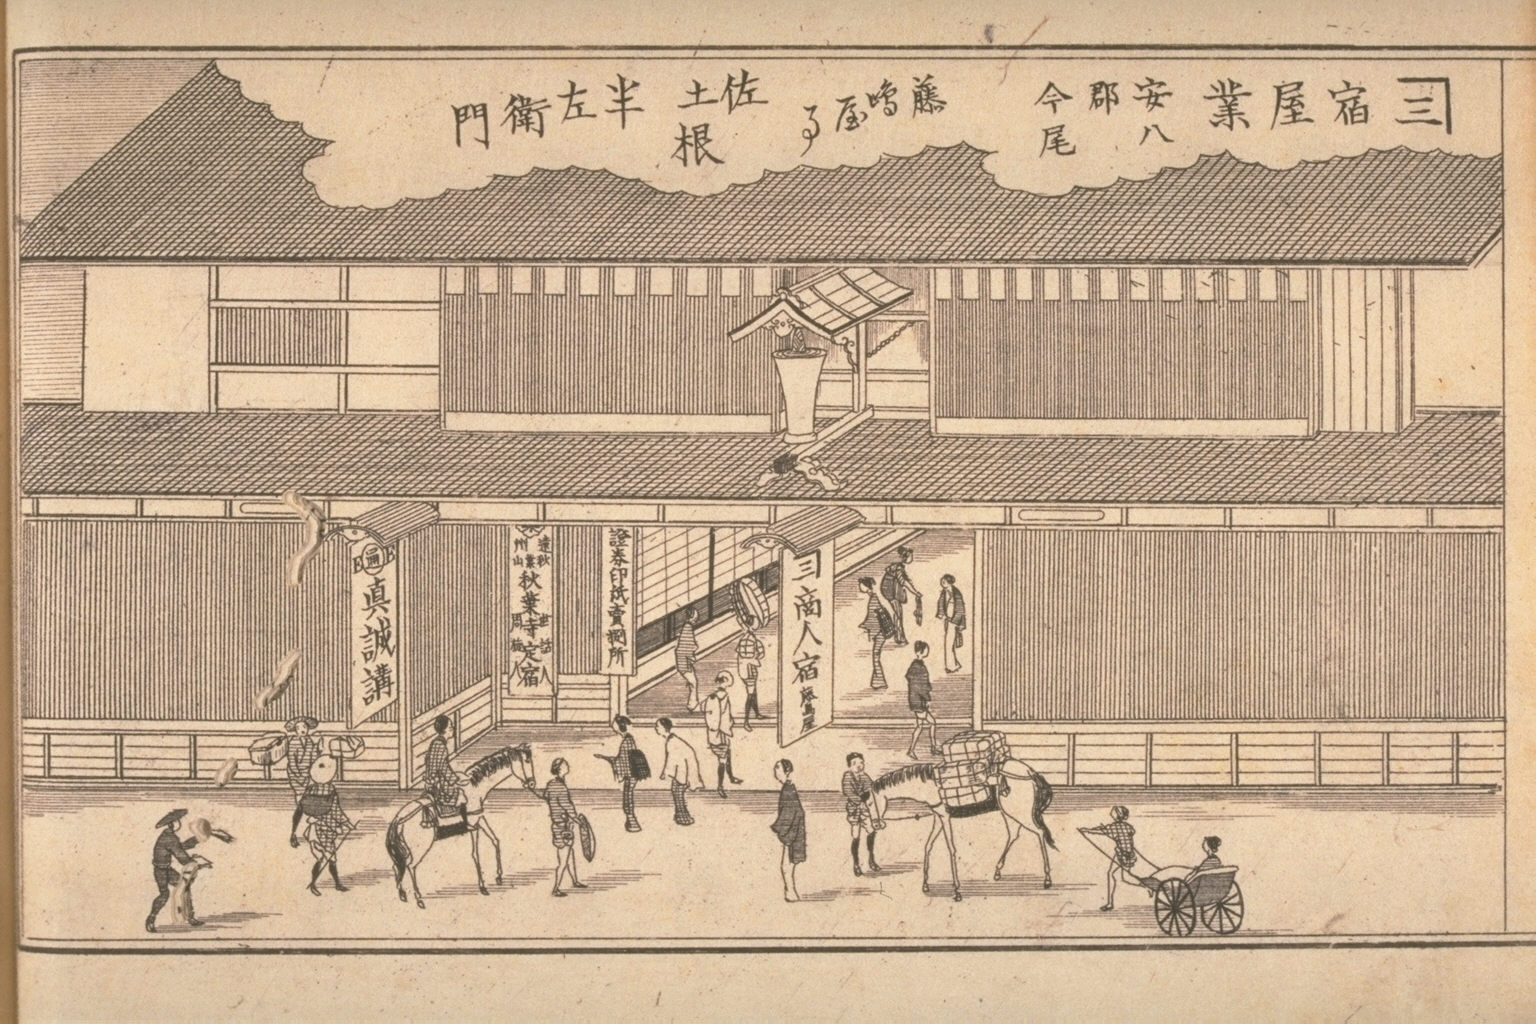 宿屋業
安八郡今尾
藤嶋屋事
佐土根半左衛門
三
商人宿
藤嶋屋
證券印紙賣捌所
遠州秋葉山
秋葉寺定宿
真誠講